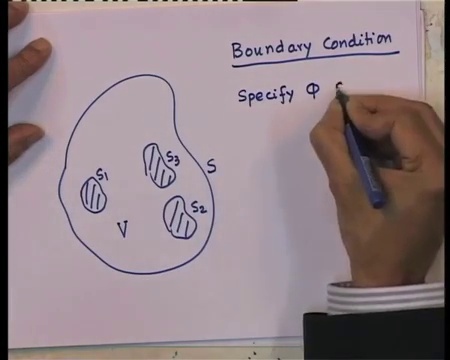 Boundary Condition
Specify Φ
S1
S3
S
S2
V